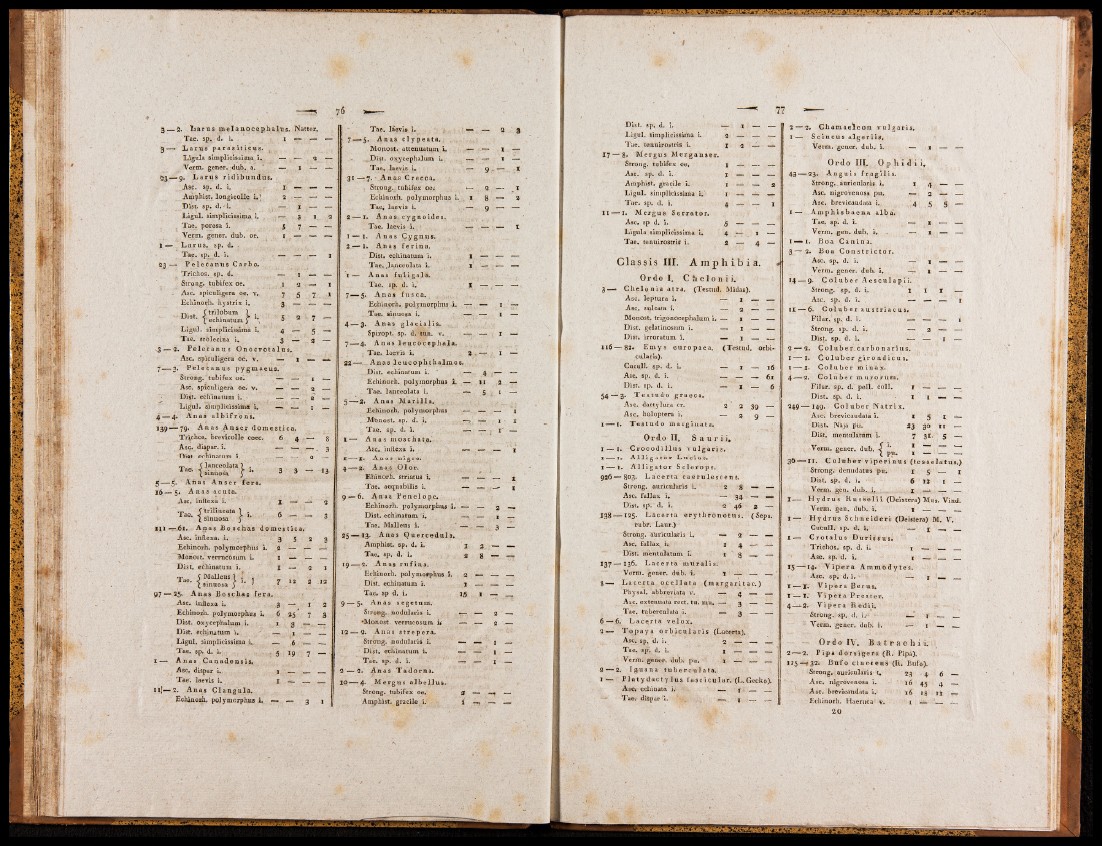 76
3 — 2. Larus melanocephalus. Natter.
Tae. sp. d. i. 1 — — —
3 — Larus parasiticus.
Ligula simplicissima i. — — 2 —
Verm. gener. dub. v. — 1 — —
23 — 9. Larus ridibundus.
Asc. sp. d. i. 1 — — —
Amphist. longicolle i. 2 — — —
Dist. sp. d. i. — 1 — —
Ligul. simplicissima i. — 3 1 2
Tae. porosa i. 5 7 — —
Verm. gener. dub. oe. 1 — — —
1 — Larus, sp. d.
Tae. sp. d. i. — — — 1
23 — Pelecanus Carbo.
Trichos. sp. d. — 1 — —
Strong. tubifex oe. 1 2 — 1
Asc. spiculigera oe. v. 7 5 7 1
Echinorh. hystrix i. 3 — — —
Dist. { trilobum echinatum } i. 5 2 7 —
Ligul. simplicissima i. 4 — 5 —
Tae. scolecina i. 3 — 2 —
3 — 2. Pelecanus Onocrotalus.
Asc. spiculigera oe. v. — 1 — —
7 — 3. Pelecanus pygmaeus.
Strong. tubifex oe. — — 1 —
Asc. spiculigera oe. v. — — 2 —
Dist. echinatum i. — — 2 —
Ligul. simplicissima i. — — 1 —
4 — 4. Anas albifrons.
139 — 79. Anas Anser domestica.
Trichos. brevicolle coec. 6 4 — 8
Asc. dispar. i. — — — 3
Dist. echinatum i. — — 2 —
Tae. { lanceolata sinuosa } i. 3 3 — 13
5 — 5. Anas Anser fera.
16 — 5. Anas acuta.
Asc. inflexa i. 1 — — 2
Tae. { trilineata sinuosa } i. 6 — — 3
111 — 61. Anas Boschas domestica.
Asc. inflexa. i. 3 5 2 3
Echinorh. polymorphus i. 2 — — —
Monost. verrucosum i. 1 — — —
Dist. echinatum i. 1 — 2 1
Tae. { Malleus sinuosa } i. 7 12 2 12
97 — 25. Anas Boschas fera.
Asc. inflexa i. 3 — 1 2
Echinorh. polymorphus i. 6 25 7 3
Dist. oxycephalum i. 1 3 — —
Dist. echinatum i. — 1 — —
Ligul. simplicissima i. — 6 — —
Tae. sp. d. i. 5 19 7 —
1 — Anas Canadensis.
Asc. dispar i. 1 — — —
Tae. laevis i. 1 — — —
11 — 2. Anas Clangula.
Echinorh. polymorphus i. — — 3 1
Tae. laevis i. — — 2 3
7 — 5. Anas clypeata.
Monost. attenuatum i. — — 1 —
Dist. oxycephalum i. — — 1 —
Tae. laevis i. — — 9 — 1
31 — 7. Anas Crecca.
Strong. tubifex oe. — 2 — 1
Echinorh. polymorphus i. 1 8 — 2
Tae. laevis i. — 9 — —
2 — 1. Anas cygnoides.
Tae. laevis i. — — — 1
1 — 1. Anas Cygnus.
2 — 1. Anas ferina.
Dist. echinatum i. 1 — — —
Tae. lanceolata i. 1 — — —
1 — Anas fuligula.
Tae. sp. d. i. 1 — — —
7 — 5. Anas fusca.
Echinorh. polymorphus i. — — 1 —
Tae. sinuosa i. — — 1 —
4 — 3. Anas glacialis.
Spiropt. sp. d. tun. v. — — 1 —
7 — 4. Anas leucocephala.
Tae. laevis i. 2 — 1 —
22 — Anas leucophthalmos.
Dist. echinatum i. — 4 — —
Echinorh. polymorphus i. — 11 2 —
Tae. lanceolata i. — 5 1 —
5 — 2. Anas Marilla.
Echinorh. polymorphus — — — 1
Monost. sp. d. i. — — 1 1
Tae. sp. d. i. — — 1 —
1 — Anas moschata.
Asc. inflexa i. — — — 1
1 — 1. Anas nigra.
4 — 2. Anas Olor.
Echinorh. striatus i. — — — 1
Tae. aequabilis i. — — — 1
9 — 6. Anas Penelope.
Echinorh. polymorphus i. — — 2 —
Dist. echinatum i. — — 1 —
Tae. Malleus i. — — 3 —
25 — 13. Anas Querquedula.
Amphist. sp. d. i. 1 2 — —
Tae. sp. d. i. 2 8 — —
19 — 2. Anas rufina.
Echinorh. polymorphus i. 2 — — —
Dist. echinatum i. 1 — — —
Tae. sp d. i. 15 1 — —
9 — 5. Anas segetum.
Strong. nodularis i. — — 2 —
Monost. verrucosum i. — — 2 —
12 — 9. Anas strepera.
Strong. nodularis i. — — 1 —
Dist. echinatum i. — — 1 —
Tae. sp. d. i. — — 1 —
2 — 2. Anas Tadorna.
10 — 4. Mergus albellus.
Strong. tubifex oe. 2 — — —
Amphist. gracile i. 1 — — —
77
Dist. sp. d. i. — 1 — —
Ligul. simplicissima i. 2 — — —
Tae. tenuirostris i. 1 2 — —
17 — 8. Mergus Merganser.
Strong. tubifex oe. 1 — — —
Asc. sp. d. i. 1 — — —
Amphist. gracile i. 1 — — 2
Ligul. simplicissima i. 1 — — —
Tae. sp. d. i. 4 — — 1
11 — 1. Mergus Serrator.
Asc. sp d. i. 5 — — —
Ligula simplicissima i. 4 — 1 —
Tae. tenuirostris i. 2 — 4 —
Classis III. Amphibia.
Ordo I. Chelonii.
3 — Chelonia atra. (Testud. Midas).
Asc. leptura i. — 1 — —
Asc. sulcata i. — 2 — —
Monost. trigonocephalum i. — 1 — —
Dist. gelatinosum i. — 1 — —
Dist. irroratum i. — 1 — —
116 — 82. Emys europaea. (Testud. orbi-
cularis).
Cucull. sp. d. i. — 1 — 16
Asc. sp. d. i. — — — 61
Dist. sp. d. i. — 1 — 6
54 — 3. Testudo graeca.
Asc. dactylura cr. 2 2 39 —
Asc. holoptera i. — 2 9 —
1 — 1. Testudo marginata.
Ordo II. Saurii.
1 — 1. Crocodillus vulgaris.
1 — 1. Alligator Lucius.
1 — 1. Alligator Sclerops.
926 — 803. Lacerta caerulescens.
Strong. auricularis i. 2 8 — —
Asc. fallax i. — 34 — —
Dist. sp. d. i. 2 46 2 —
138 — 125. Lacerta erythronotus. (Seps.
rubr. Laur.)
Strong. auricularis i. — 2 — —
Asc. fallax i. 1 4 — —
Dist. mentulatum i. 1 8 — —
137 — 136. Lacerta muralis.
Verm. gener. dub. i. 1 — — —
5 — Lacerta ocellata (margaritac.)
Physal. abbreviata v. — 4 — —
Asc. extenuata rect. — 3 — —
Tae. tuberculata i. — 3 — —
6 — 6. Lacerta velox.
2 — Topaya orbicularis (Lacerta).
Asc. sp. d. i. 2 — — —
Tae. sp. d. i. 1 — — —
Verm. gener. dub. pu. 1 — — —
2 — 2. Iguana tuberculata.
1 — Platydactylus fascicular. (L. Gecko).
Asc. echinata i. — 1 — —
Tae. dispar i. — 1 — —
2 — 2. Chamaeleon vulgaris.
1 — Scincus algeriis.
Verm. gener. dub. i. — 1 — —
Ordo III. Ophidii.
43 — 23. Anguis fragilis.
Strong. auricularis i. 1 4 — —
Asc. nigrovenosa pu. — 2 — —
Asc. brevicaudata i. 4 5 5 —
1 — Amphisbaena alba.
Tae. sp. d. i. — 1 — —
Verm. gen. dub. i. — 1 — —
1 — 1. Boa Canina.
3 — 2. Boa Constrictor.
Asc. sp. d. i. — 1 — —
Verm. gener. dub. i. — 1 — —
14 — 9. Coluber Aesculapii.
Strong. sp. d. i. 1 1 1 —
Asc. sp. d. i. — — — 1
11 — 6. Coluber austriacus.
Filar. sp. d. i. — — — 1
Strong. sp. d. i. — — 2 —
Dist. sp. d. i. — — 1 —
2 — 2. Coluber carbonarius.
1 — 1. Coluber girondicus.
1 — 1. Coluber minax.
4 — 2. Coluber murorum.
Filar. sp. d. pell. coll. 1 — — —
Dist. sp. d. i. 1 1 — —
249 — 149. Coluber Natrix.
Asc. brevicaudata i. 1 5 1 —
Dist. Naja pu. 23 30 11 —
Dist. mentulatum i. 7 31 5 —
Verm. gener. dub. { i. 1 — — —
pu. 1 — — —
36 — 11. Coluber viperinus (tesselatus.)
Strong. denudatus pu. 1 5 — 1
Dist. sp. d. i. 6 12 1 —
Verm. gen. dub. i. 1 — — —
1 — Hydrus Russelii (Deistera) Mus. Vind.
Verm. gen. dub. i. 1 — — —
1 — Hydrus Schneideri (Deistera) M. V.
Cucull. sp. d. i. — 1 — —
1 — Crotalus Durissus.
Trichos. sp. d. i. 1 — — —
Asc. sp. d. i. 1 — — —
15 — 14. Vipera Ammodytes.
Asc. sp. d. i. — 1 — —
1 — 1. Vipera Berus.
1 — 1. Vipera Prester.
4 — 2. Vipera Redii.
Strong. sp. d. i. — 1 — —
Verm. gener. dub. i. — 1 — —
Ordo IV. Batrachii.
2 — 2. Pipa dorsigera (R. Pipa).
125 — 32. Bufo cinereus (R. Bufo).
Strong. auricularis i. 23 4 6 —
Asc. nigrovenosa i. 16 45 4 —
Asc. brevicaudata i. 16 18 12 —
Echinorh. Haeruca v. 1 — — —
20